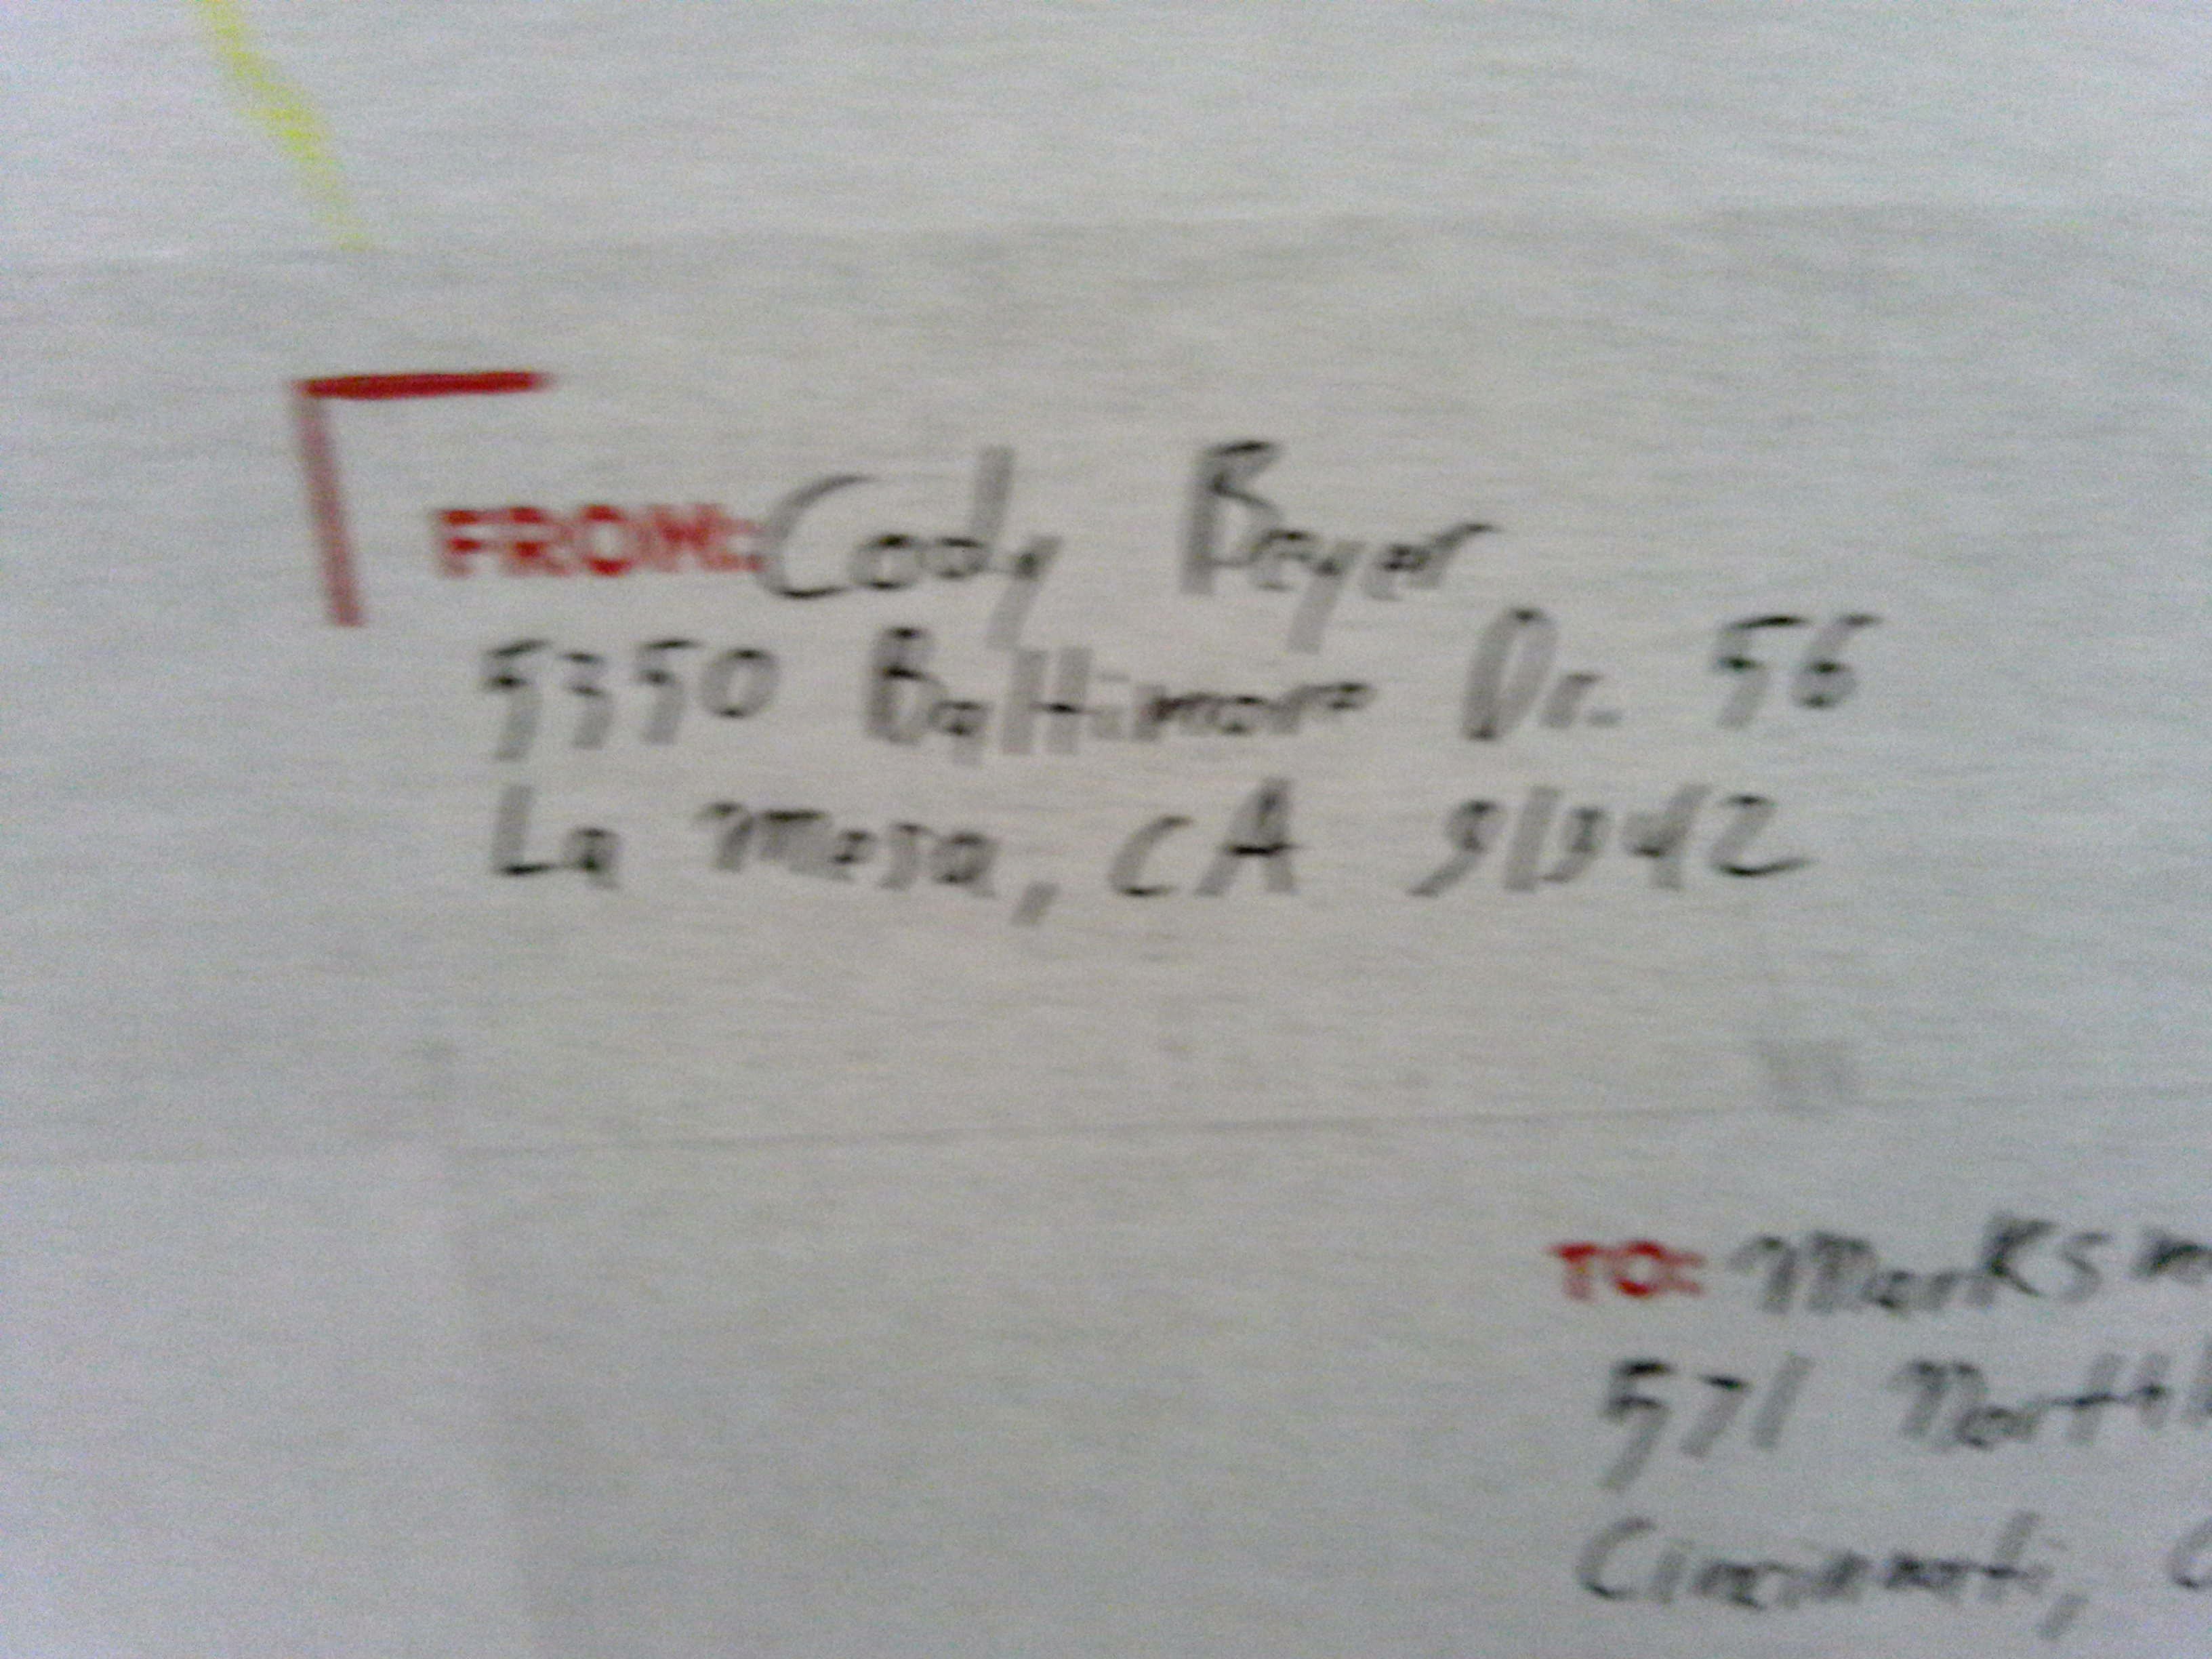 FROM: Cody Beyer
5350 Baltimore Dr. 56
La Mesa, CA 91942
TO:
571 North
Cincinnati,